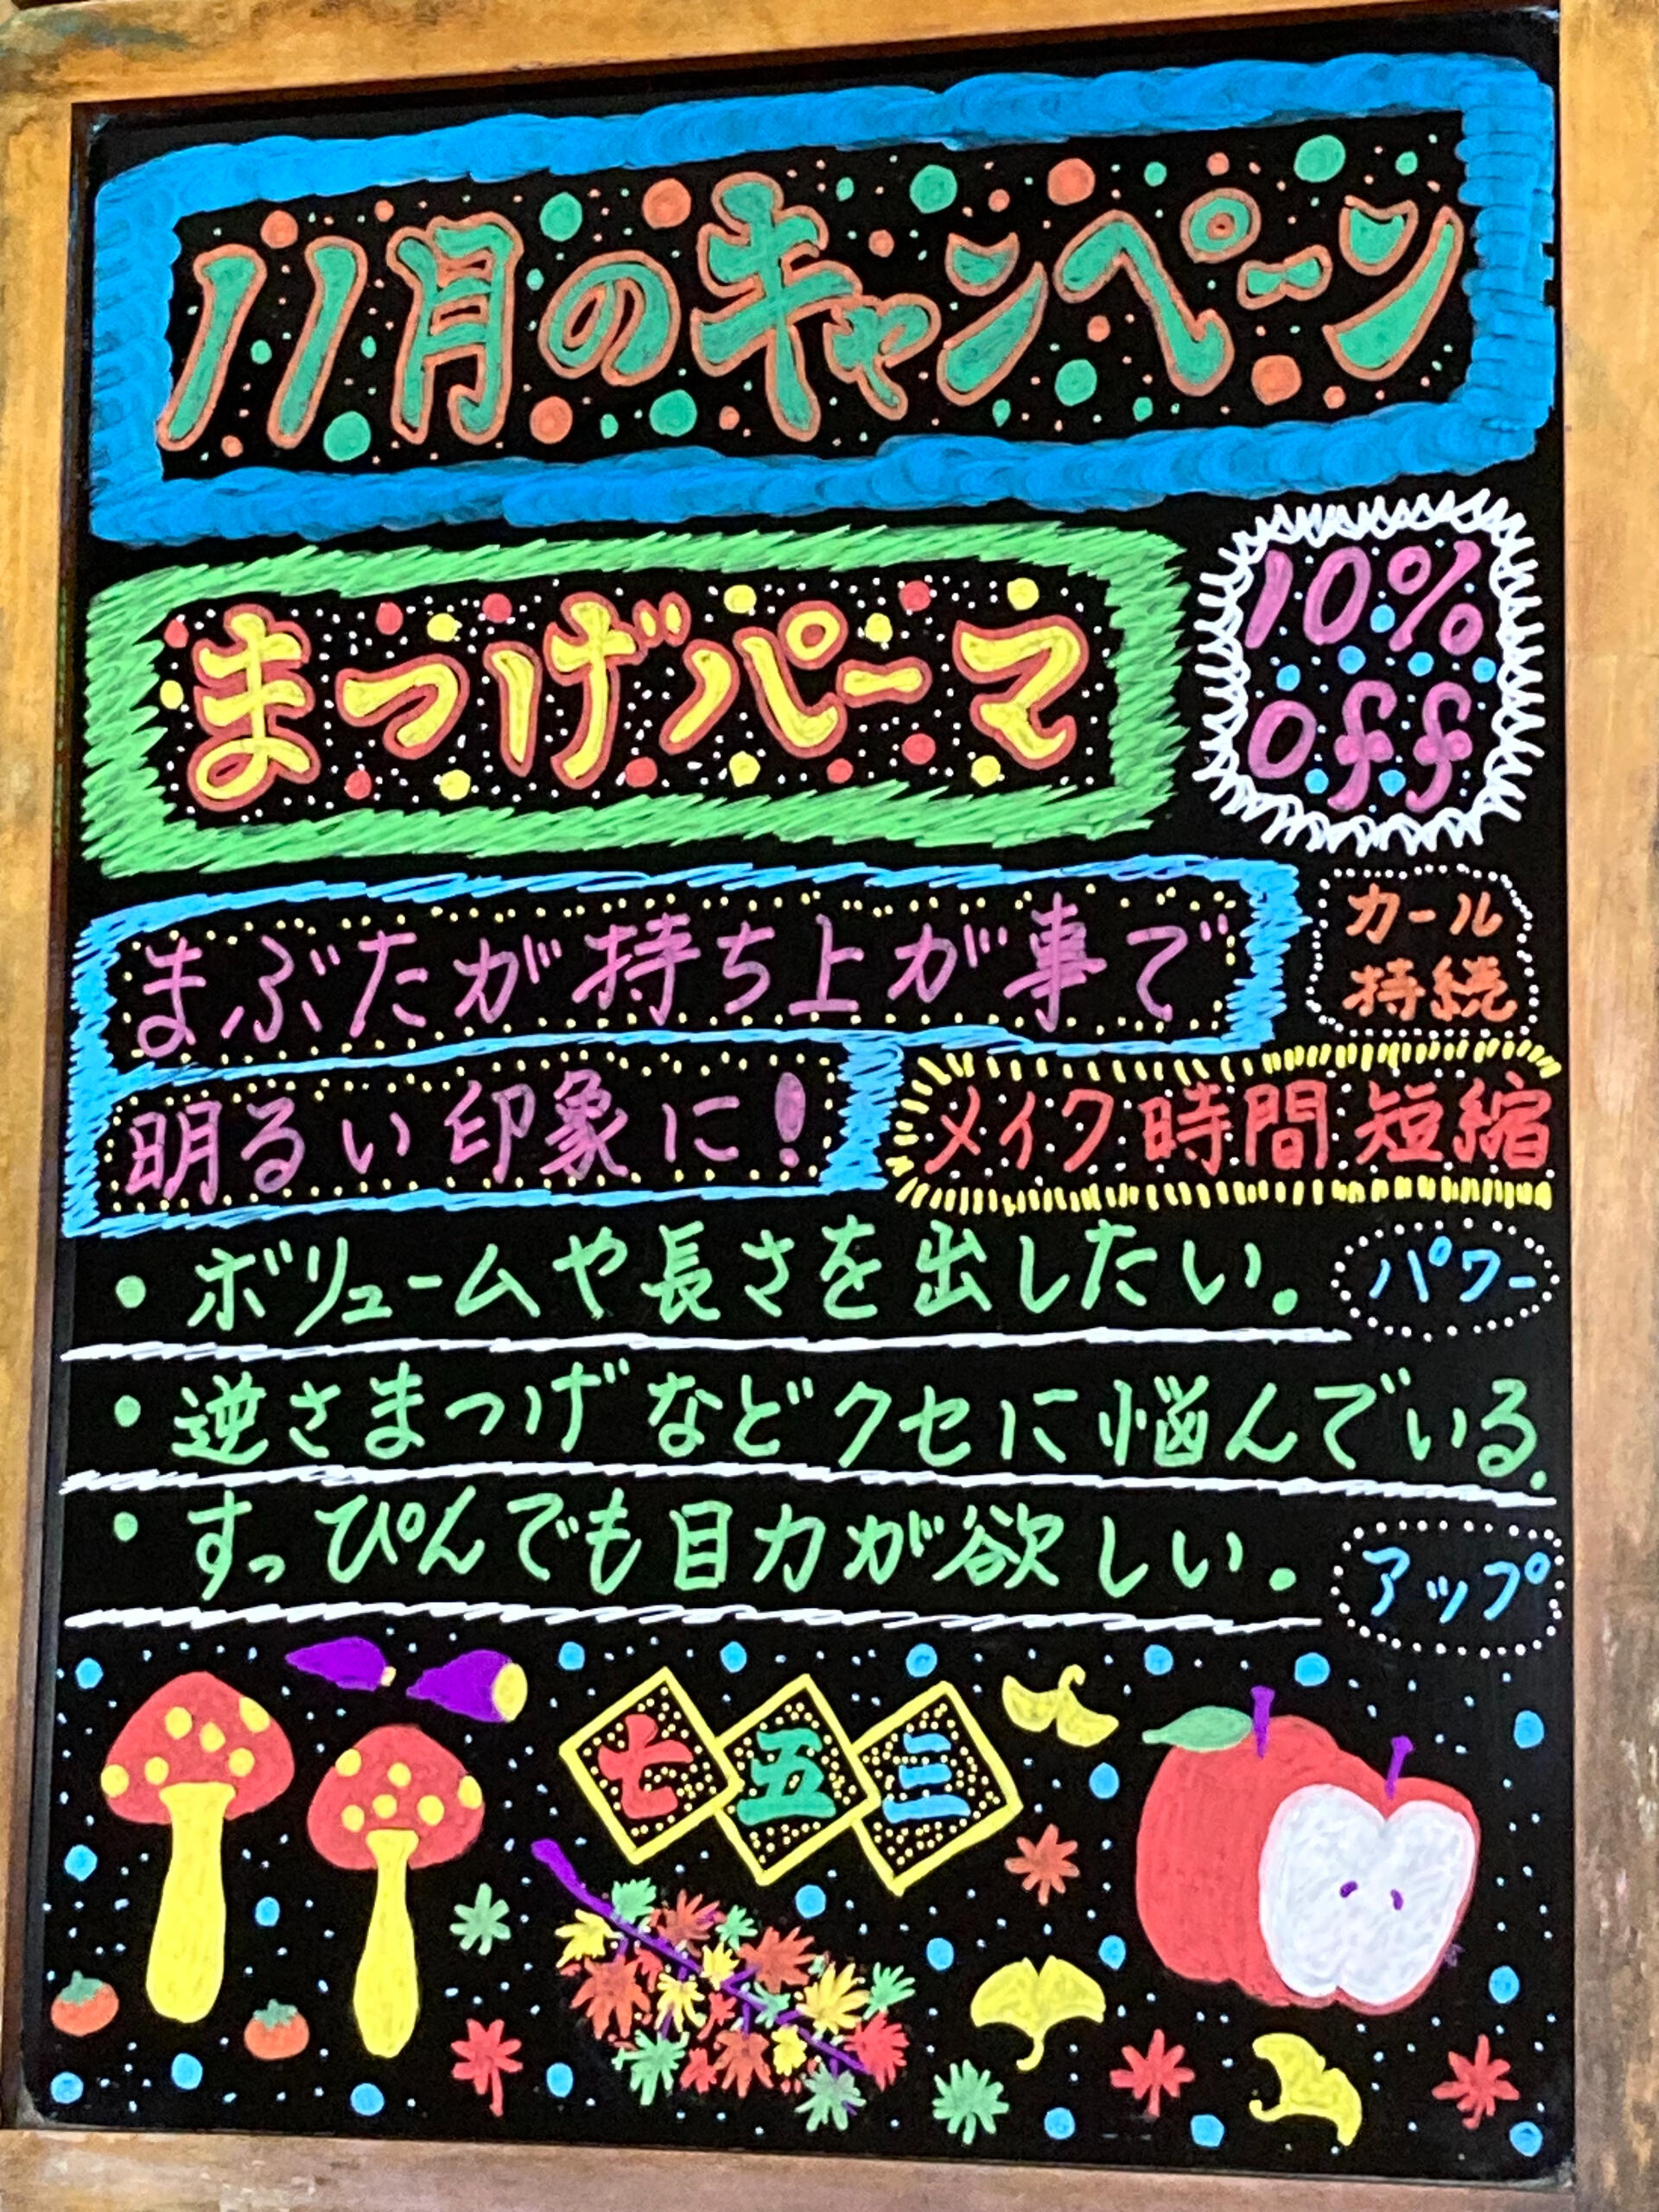 11月のキャンペーン
まつげパーマ
10%
off
まぶたが持ち上が事で
明るい印象に!
カール
持続
メイク時間短縮
・ボリュームや長さを出したい。
パワー
・逆さまつげなどクセに悩んでいる.
・すっぴんでも目力が欲しい。
アップ
七五三